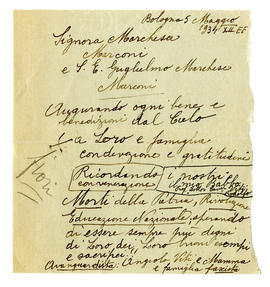 Bologna 5 Maggio
1934 XII EF
Signora Marchesa
Marconi
e S. E. Guglielmo Marchese
Marconi
Augurando ogni bene e
benedizioni dal Cielo
a Loro e famiglia
con devozione e gratitudini
Ricordando i nostri
con venerazione
Morti della Patria, Rivoluzione
Educazione Nazionale, sperando
di essere sempre più degni
di Loro, dei Loro nuovi esempi
e sacrifici
Avanguardista Angiolo Vite e Mamma
e famiglia fascista
fiori